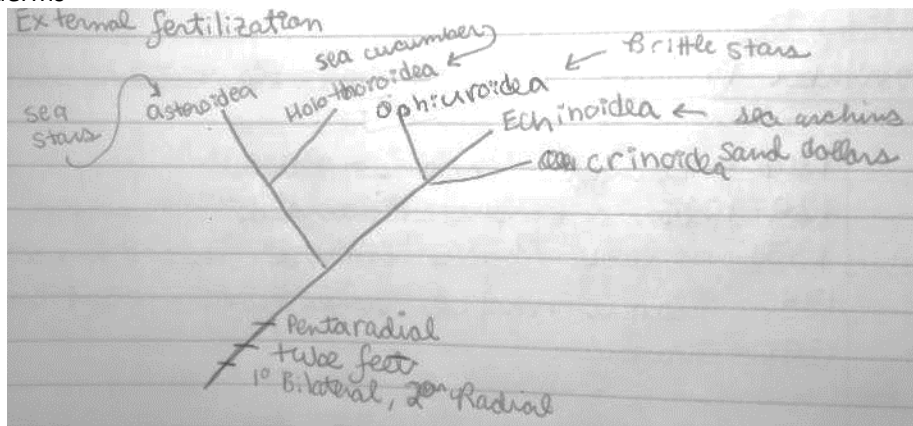 External fertilization
sea cucumber
Brittle stars
asteroidea
Holothoroidea
Ophiuroidea
sea stars
Echinoidea
sea urchins
crinoidea
sand dollars
Pentaradial
tube feet
1° Bilateral, 2° Radial